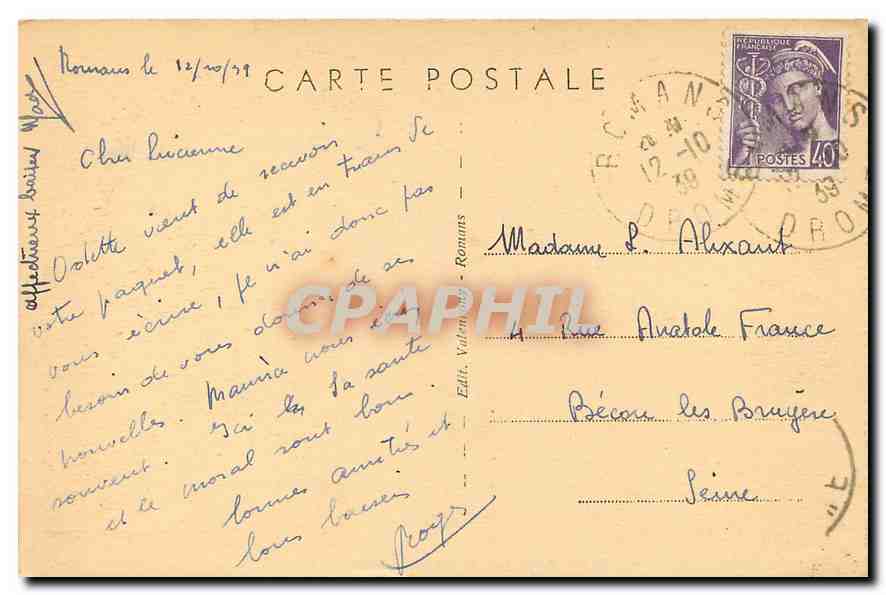 Romans le 12/10/39
CARTE POSTALE
Cher Lucienne
Odette vient de recevoir
votre paquet, elle est en train de
vous écrire, je n'ai donc pas
besoin de vous donner de ses
nouvelles. Maurice nous écrit
souvent. Ici la santé
et le moral sont bons.
bonnes amitiés et
bons baisers
Roger
affectueux baisers
Edit. Valentin - Romans -
RÉPUBLIQUE
FRANÇAISE
POSTES 40
ROMANS
12-10
39
DROME
Madame L. Alixant
4 Rue Anatole France
Bécon les Bruyère
Seine
CPAPHIL